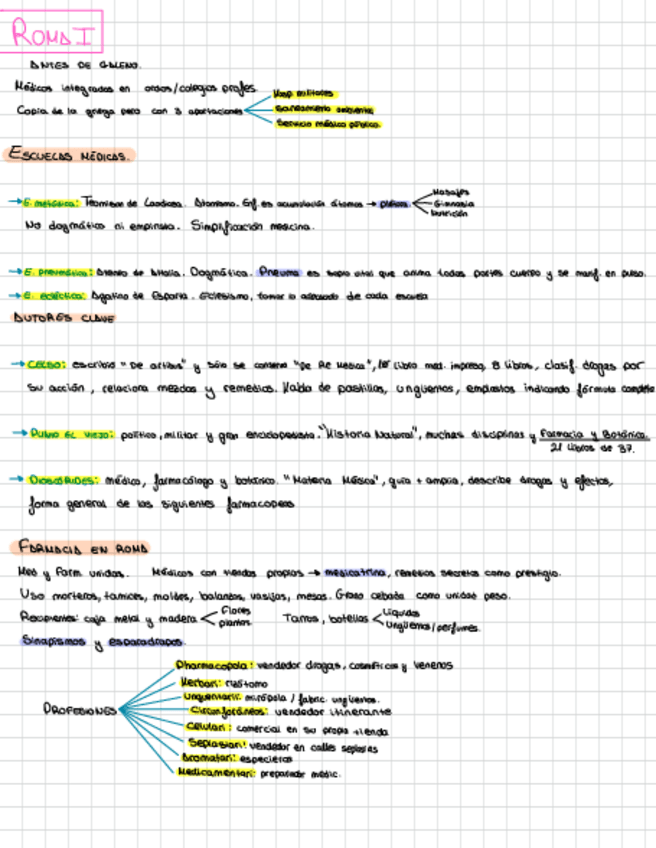 ROMA I
ANTES DE GALENO.
Médicos integrados en ordos/colegios profes.
Copia de la griega pero con 3 aportaciones
Hosp militares
Saneamiento ambiental
Servicio médico público.
ESCUELAS MÉDICAS.
→ E. metódica: Temison de Laodicea. Atomismo. Enf. es acumulación átomos →
Masajes
Gimnasia
Nutrición
No dogmático ni empirista. Simplificación medicina.
→ E. pneumática: Ateneo de Attalia. Dogmática. Pneuma es soplo vital que anima todas partes cuerpo y se manif. en pulso.
→ E. ecléctica: Agatino de Esparta. Eclesismo, tomar lo adecuado de cada escuela
AUTORES CLAVE
→ CELSO: escribió "De artibus" y sólo se conserva "De Re Medica", 1er libro med. impreso, 8 libros, clasif. drogas por
su acción, relaciona mezclas y remedios. Habla de pastillas, ungüentos, emplastos indicando fórmula completa
→ PLINIO EL VIEJO: político, militar y gran enciclopedista. "Historia Natural", muchas disciplinas y Farmacia y Botánica.
21 libros de 37.
→ DIOSCÓRIDES: médico, farmacólogo y botánico. "Materia Médica", guía + amplia, describe drogas y efectos,
forma general de las siguientes farmacopeas
FARMACIA EN ROMA
Med y Farm. unidas. Médicos con tiendas propias → medicatrina, remedios secretos como prestigio.
Uso morteros, tamices, moldes, balanzas, vasijas, mesas. Grano cebada como unidad peso.
Recipientes: caja metal y madera
Flores
plantas
Tarros, botellas
Líquidos
Ungüentos/perfumes.
Sinapismos y esparadrapos.
PROFESIONES
Pharmacopola: vendedor drogas, cosméticos y venenos
Herbari: rizótomo
Unguentarii: mirópola / fabric. ungüentos.
Circunforáneos: vendedor itinerante
Celulari: comercial en su propia tienda
Seplasiari: vendedor en calles seplasias
Aromatari: especieros
Medicamentari: preparador médic.